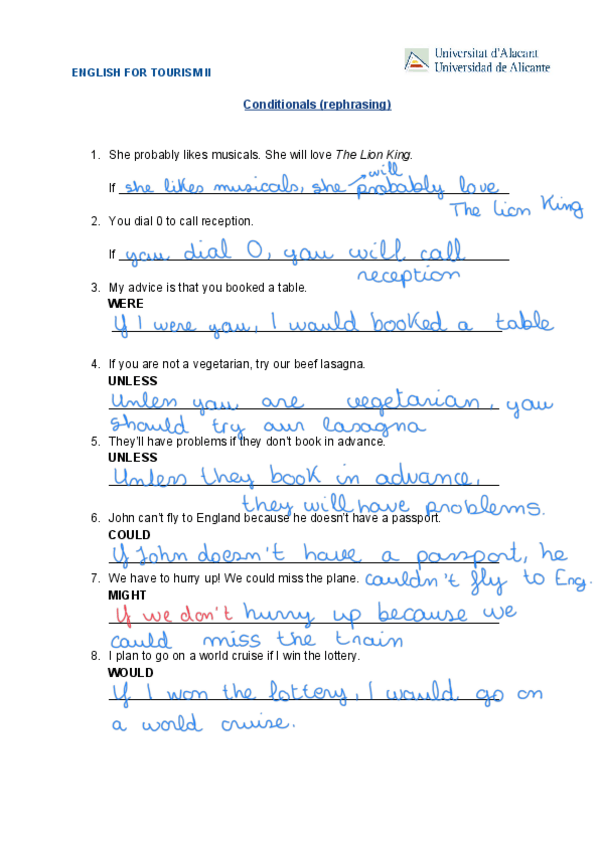 Universitat d'Alacant
Universidad de Alicante
ENGLISH FOR TOURISM II
Conditionals (rephrasing)
1. She probably likes musicals. She will love The Lion King.
will
If she likes musicals, she probably love
The Lion King
2. You dial 0 to call reception.
If you dial 0, you will call
reception
3. My advice is that you booked a table.
WERE
If I were you, I would booked a table
4. If you are not a vegetarian, try our beef lasagna.
UNLESS
Unless you are vegetarian, you
should try our lasagna
5. They'll have problems if they don't book in advance.
UNLESS
Unless they book in advance,
they will have problems.
6. John can't fly to England because he doesn't have a passport.
COULD
If John doesn't have a passport, he
couldn't fly to Eng.
7. We have to hurry up! We could miss the plane.
MIGHT
If we don't hurry up because we
could miss the train
8. I plan to go on a world cruise if I win the lottery.
WOULD
If I won the lottery, I would go on
a world cruise.